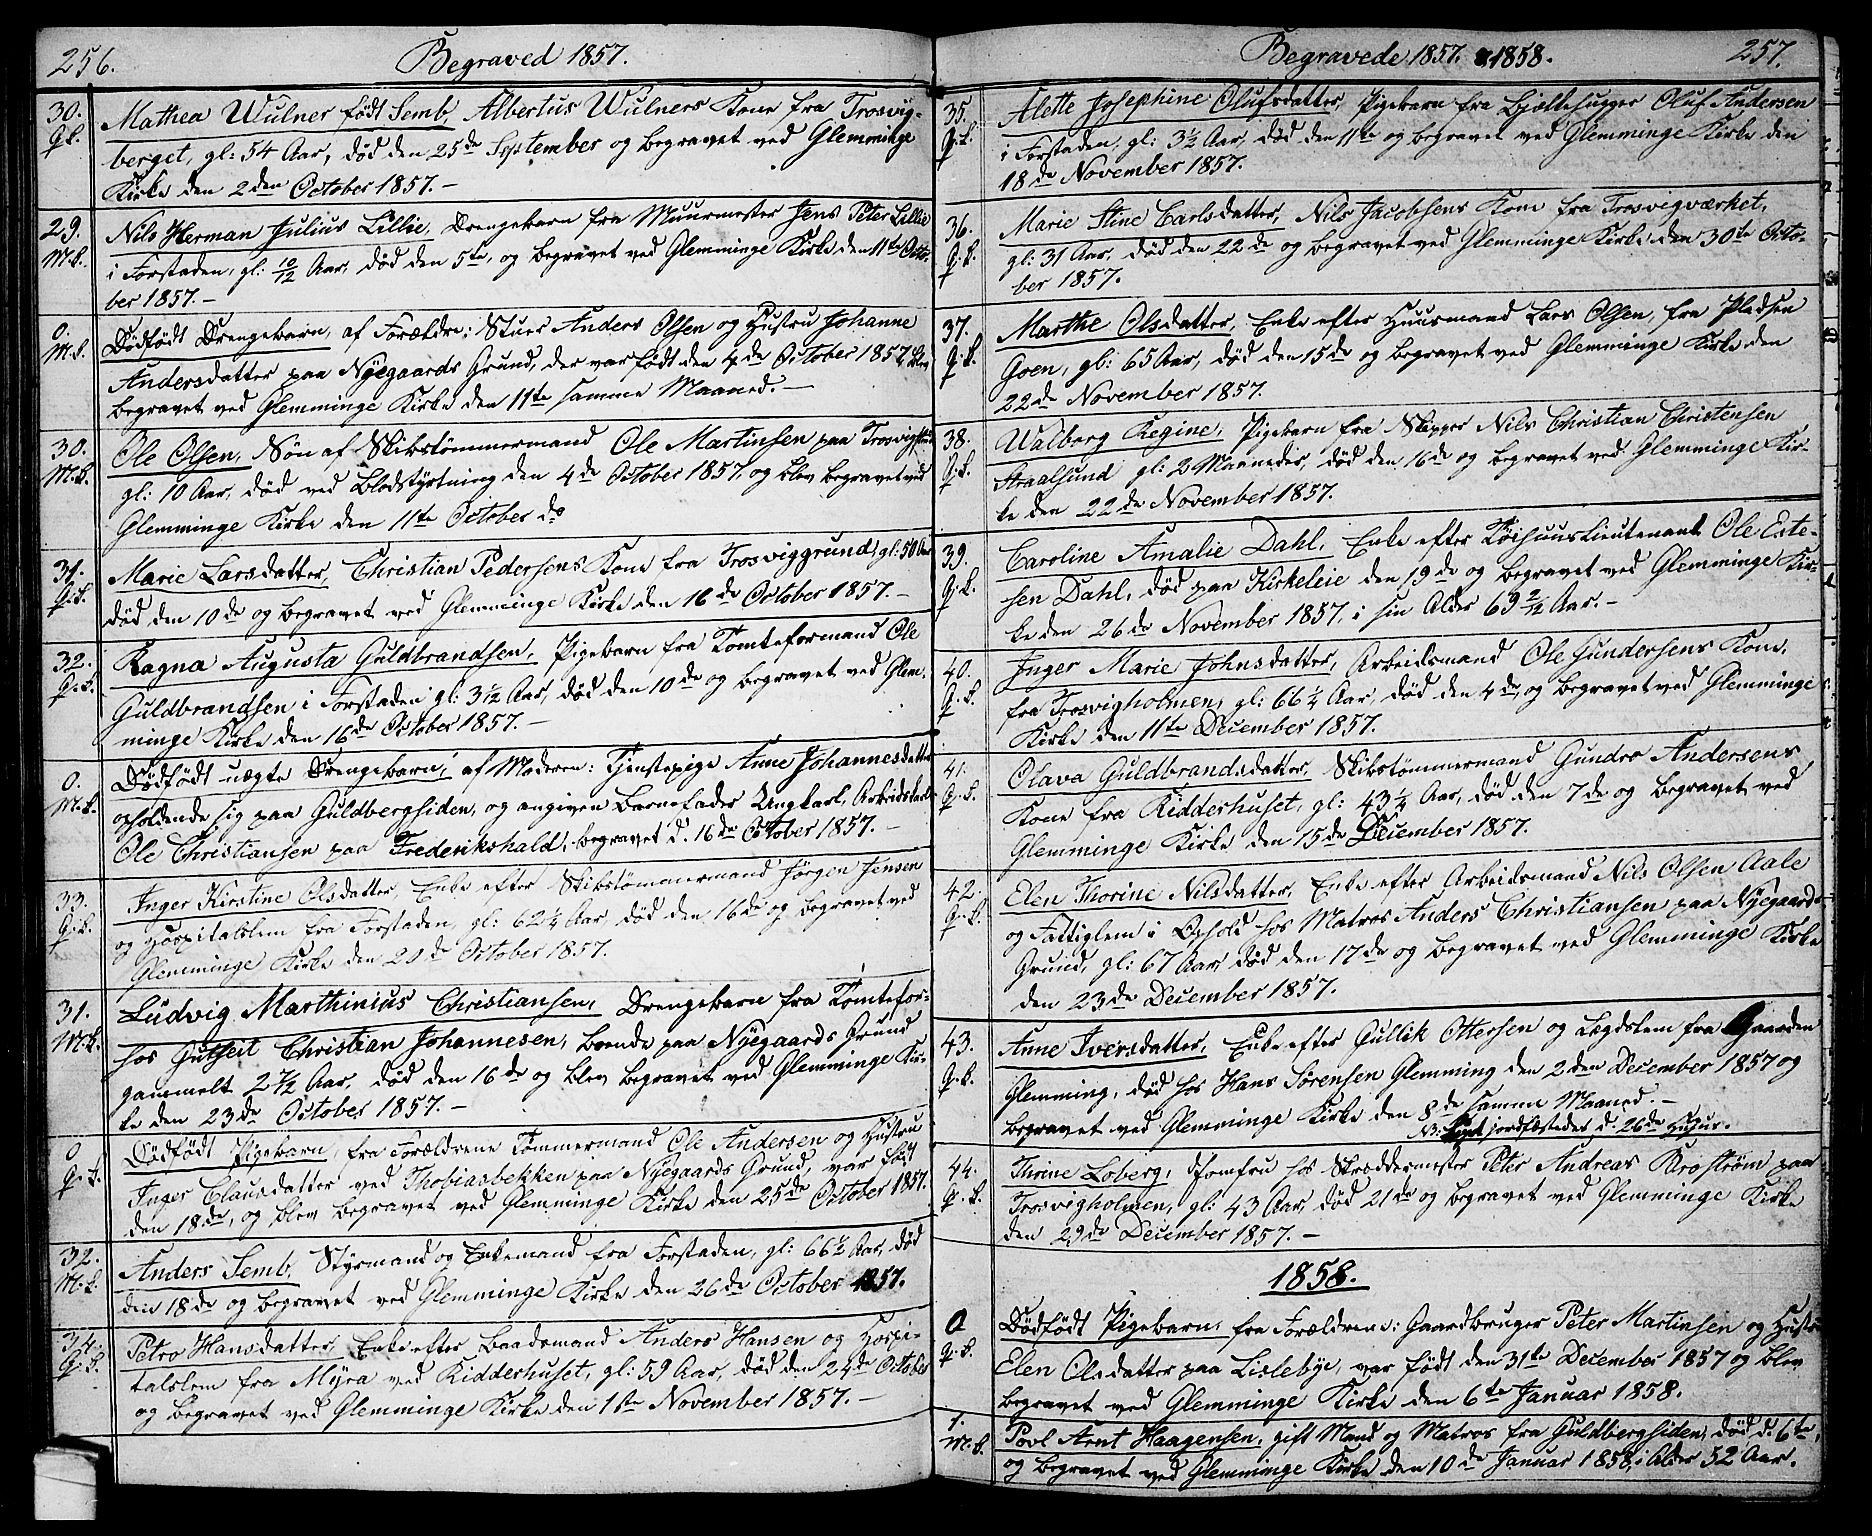 256.
Begraved 1857.
30. Mathea Wulner født Semb, Albertus Wulners Kone fra Trosvig-
Q.k. berget, gl: 54 Aar, død den 25de September og begravet ved Glemminge
Kirke den 2den October 1857.-
29. Nils Herman Julius Lillie, Drengebarn fra Muurmester Jens Peter Lillie
M.k. i Forstaden, gl: 10/12 Aar, død den 5te, og begravet ved Glemminge Kirke den 11te Octo-
ber 1857.-
0. Dødfødt Drengebarn, af Forældre: Stuer Anders Olsen og Hustru Johanne
M.k. Andersdatter paa Nyegaards Grund, der var født den 4de October 1857, blev
begravet ved Glemminge Kirke den 11te samme Maaned.-
30. Ole Olsen, Søn af Skibstømmermand Ole Martinsen paa
M.k. gl: 10 Aar, død ved Blodstyrtning den 4de October 1857, og blev begravet ved
Glemminge Kirke den 11te October do
31. Marie Larsdatter, Christian Pedersens Kone fra Trosviggrund, gl: 50 Aar
Q.k. død den 10de og begravet ved Glemminge Kirke den 16de October 1857.-
32. Ragna Augusta Guldbrandsen, Pigebarn fra Tomteformand Ole
Q.k. Guldbrandsen i Forstaden gl: 3 1/2 Aar, død den 10de og begravet ved Glem-
minge Kirke den 16de October 1857.-
0. Dødfødt uægte Drengebarn, af Moderen: Tjenestepige Anne Johannesdatter
M.k. opholdende sig paa Guldbergsiden, og angiven Barnefader Ungkarl, Arbeidskarl
Ole Christiansen paa Frederikshald, begravet d. 16de October 1857.-
33. Inger Kirstine Olsdatter, Enke efter Skibstømmermand Jørgen Jensen
Q.k. og Hospitalslem fra Forstaden, gl: 62 1/4 Aar, død den 16de og begravet ved
Glemminge Kirke den 20de October 1857.
31. Ludvig Marthinius Christiansen, Drengebarn fra Tomtefor-
M.k. hos Gutzeit Christian Johannesen, boende paa Nyegaards Grund
gammelt 2 7/12 Aar, død den 16de og blev begravet ved Glemminge Kir-
ke den 23de October 1857.-
0 Dødfødt Pigebarn fra Forældrene Tømmermand Ole Andersen og Hustru
Q.k. Inger Clausdatter ved Thobiasbekken paa Nyegaards Grund, var født
den 18de, og blev begravet ved Glemminge Kirke den 25de October 1857.
32. Anders Semb, Styrmand og Enkemand fra Forstaden, gl: 66 1/2 Aar, død
M.k. den 18de og begravet ved Glemminge Kirke den 26de October 1857.
34. Petro Hansdatter, Enke efter Baadsmand Anders Hansen og Hospi-
Q.k. talslem fra Myra ved Ridderhuset, gl: 59 Aar, død den 24de October
og begravet ved Glemminge Kirke den 1ste November 1857.-
Begravede 1857. & 1858.
257.
35. Alette Josephine Olufsdatter, Pigebarn fra Oluf Andersen
Q.k. i Forstaden, gl: 3 1/2 Aar, død den 11te og begravet ved Glemminge Kirke den
18de November 1857.
36. Marie Stine Carlsdatter, Nils Jacobsens Kone fra Trosvigværket,
Q.k. gl: 31 Aar, død den 22de og begravet ved Glemminge Kirke den 30te Octo-
ber 1857.
37. Marthe Olsdatter, Enke efter Huusmand Lars Olsen, fra Pladsen
Q.k. Goen, gl: 65 Aar, død den 15de og begravet ved Glemminge Kirke den
22de November 1857.
38. Walborg Regine, Pigebarn fra Skipper Nils Christian Christensen
Q.k. Straalsund gl: 2 Maaneder, død den 16de og begravet ved Glemminge Kir-
ke den 22de November 1857.
39. Caroline Amalie Dahl, Enke efter Tøihuuslieutenant Ole Este-
Q.k. sen Dahl, død paa Kirkeleie den 19de og begravet ved Glemminge Kir-
ke den 26de November 1857, i sin Alder 69 2/12 Aar.-
40. Inger Marie Johnsdatter, Arbeidsmand Ole Gundersens Kone,
Q.k. fra Trosvigholmen, gl: 66 1/4 Aar, død den 4de, og begravet ved Glemminge
Kirke den 11te December 1857.
41. Olava Guldbrandsdatter, Skibstømmermand Gundro Andersens
Q.k. Kone fra Ridderhuset, gl: 43 1/4 Aar, død den 7de og begravet ved
Glemminge Kirke den 15de December 1857.
42. Elen Thorine Nilsdatter, Enke efter Arbeidsmand Nils Olsen Aale
Q.k. og Fattiglem i Ophold hos Matros Anders Christiansen paa Nyegaards
Grund, gl: 67 Aar, død den 17de og begravet ved Glemminge Kirke
den 23de December 1857.
43. Anne Iversdatter, Enke efter Gullik Ottersen og Lægdslem fra Gaarden
Q.k. Glemming, død hos Hans Sørensen Glemming den 2den December 1857 og
begravet ved Glemminge Kirke den 8de samme Maaned.-
NB: jordfæstedes d. 26de
44. Thrine Loberg, Jomfru hos Skræddermester Peter Andreas Krostrøm paa
Q.k. Trosvigholmen, gl: 43 Aar, død 21de og begravet ved Glemminge Kirke
den 29de December 1857.-
1858.
0 Dødfødt Pigebarn, fra Forældrene: Gaardbruger Peter Martinsen og Hustru
Q.k. Elen Olsdatter paa Lislebye, var født den 31te December 1857 og blev
begravet ved Glemminge Kirke den 6te Januar 1858.
1. Povl Arnt Haagensen, gift Mand og Matros fra Guldbergsiden, død d. 6te,
M.k. og begravet ved Glemminge Kirke den 10de Januar 1858, i Alder 52 Aar.